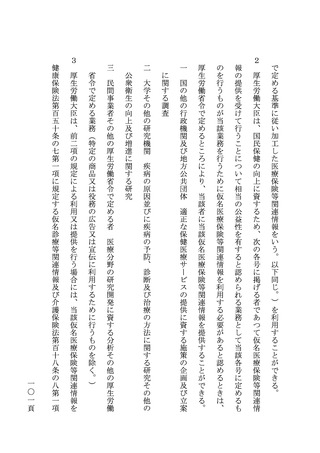 で定める基準に従い加工した医療保険等関連情報をいう。以下同じ。）を利用することができる。
２　厚生労働大臣は、国民保健の向上に資するため、次の各号に掲げる者であつて仮名医療保険等関連情
報の提供を受けて行うことについて相当の公益性を有すると認められる業務として当該各号に定めるも
のを行うものが当該業務を行うために仮名医療保険等関連情報を利用する必要があると認めるときは、
厚生労働省令で定めるところにより、当該者に当該仮名医療保険等関連情報を提供することができる。
一　国の他の行政機関及び地方公共団体　適正な保健医療サービスの提供に資する施策の企画及び立案
に関する調査
二　大学その他の研究機関　疾病の原因並びに疾病の予防、診断及び治療の方法に関する研究その他の
公衆衛生の向上及び増進に関する研究
三　民間事業者その他の厚生労働省令で定める者　医療分野の研究開発に資する分析その他の厚生労働
省令で定める業務（特定の商品又は役務の広告又は宣伝に利用するために行うものを除く。）
３　厚生労働大臣は、前二項の規定による利用又は提供を行う場合には、当該仮名医療保険等関連情報を
健康保険法第百五十条の七第一項に規定する仮名診療等関連情報及び介護保険法第百十八条の八第一項
一〇一頁